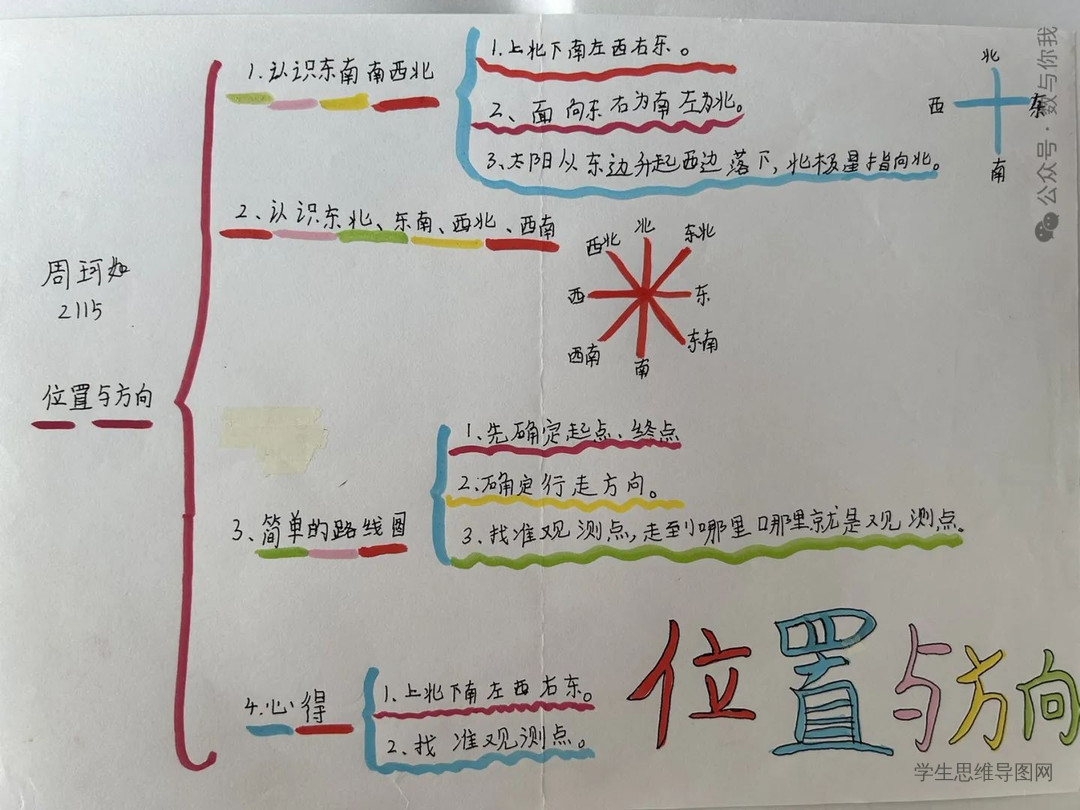 1.认识东南南西北
1.上北下南左西右东。
2、面向东右为南左为北。
3.太阳从东边升起西边落下,北极星指向北。
北
西
东
南
公众号·数与你我
2、认识东北、东南、西北、西南
北
西北
东北
西
东
西南
东南
南
周珂如
2115
位置与方向
3、简单的路线图
1.先确定起点、终点
2.确定行走方向。
3.找准观测点,走到哪里哪里就是观测点。
4.心得
1.上北下南左西右东。
2.找准观测点。
位置与方向
学生思维导图网